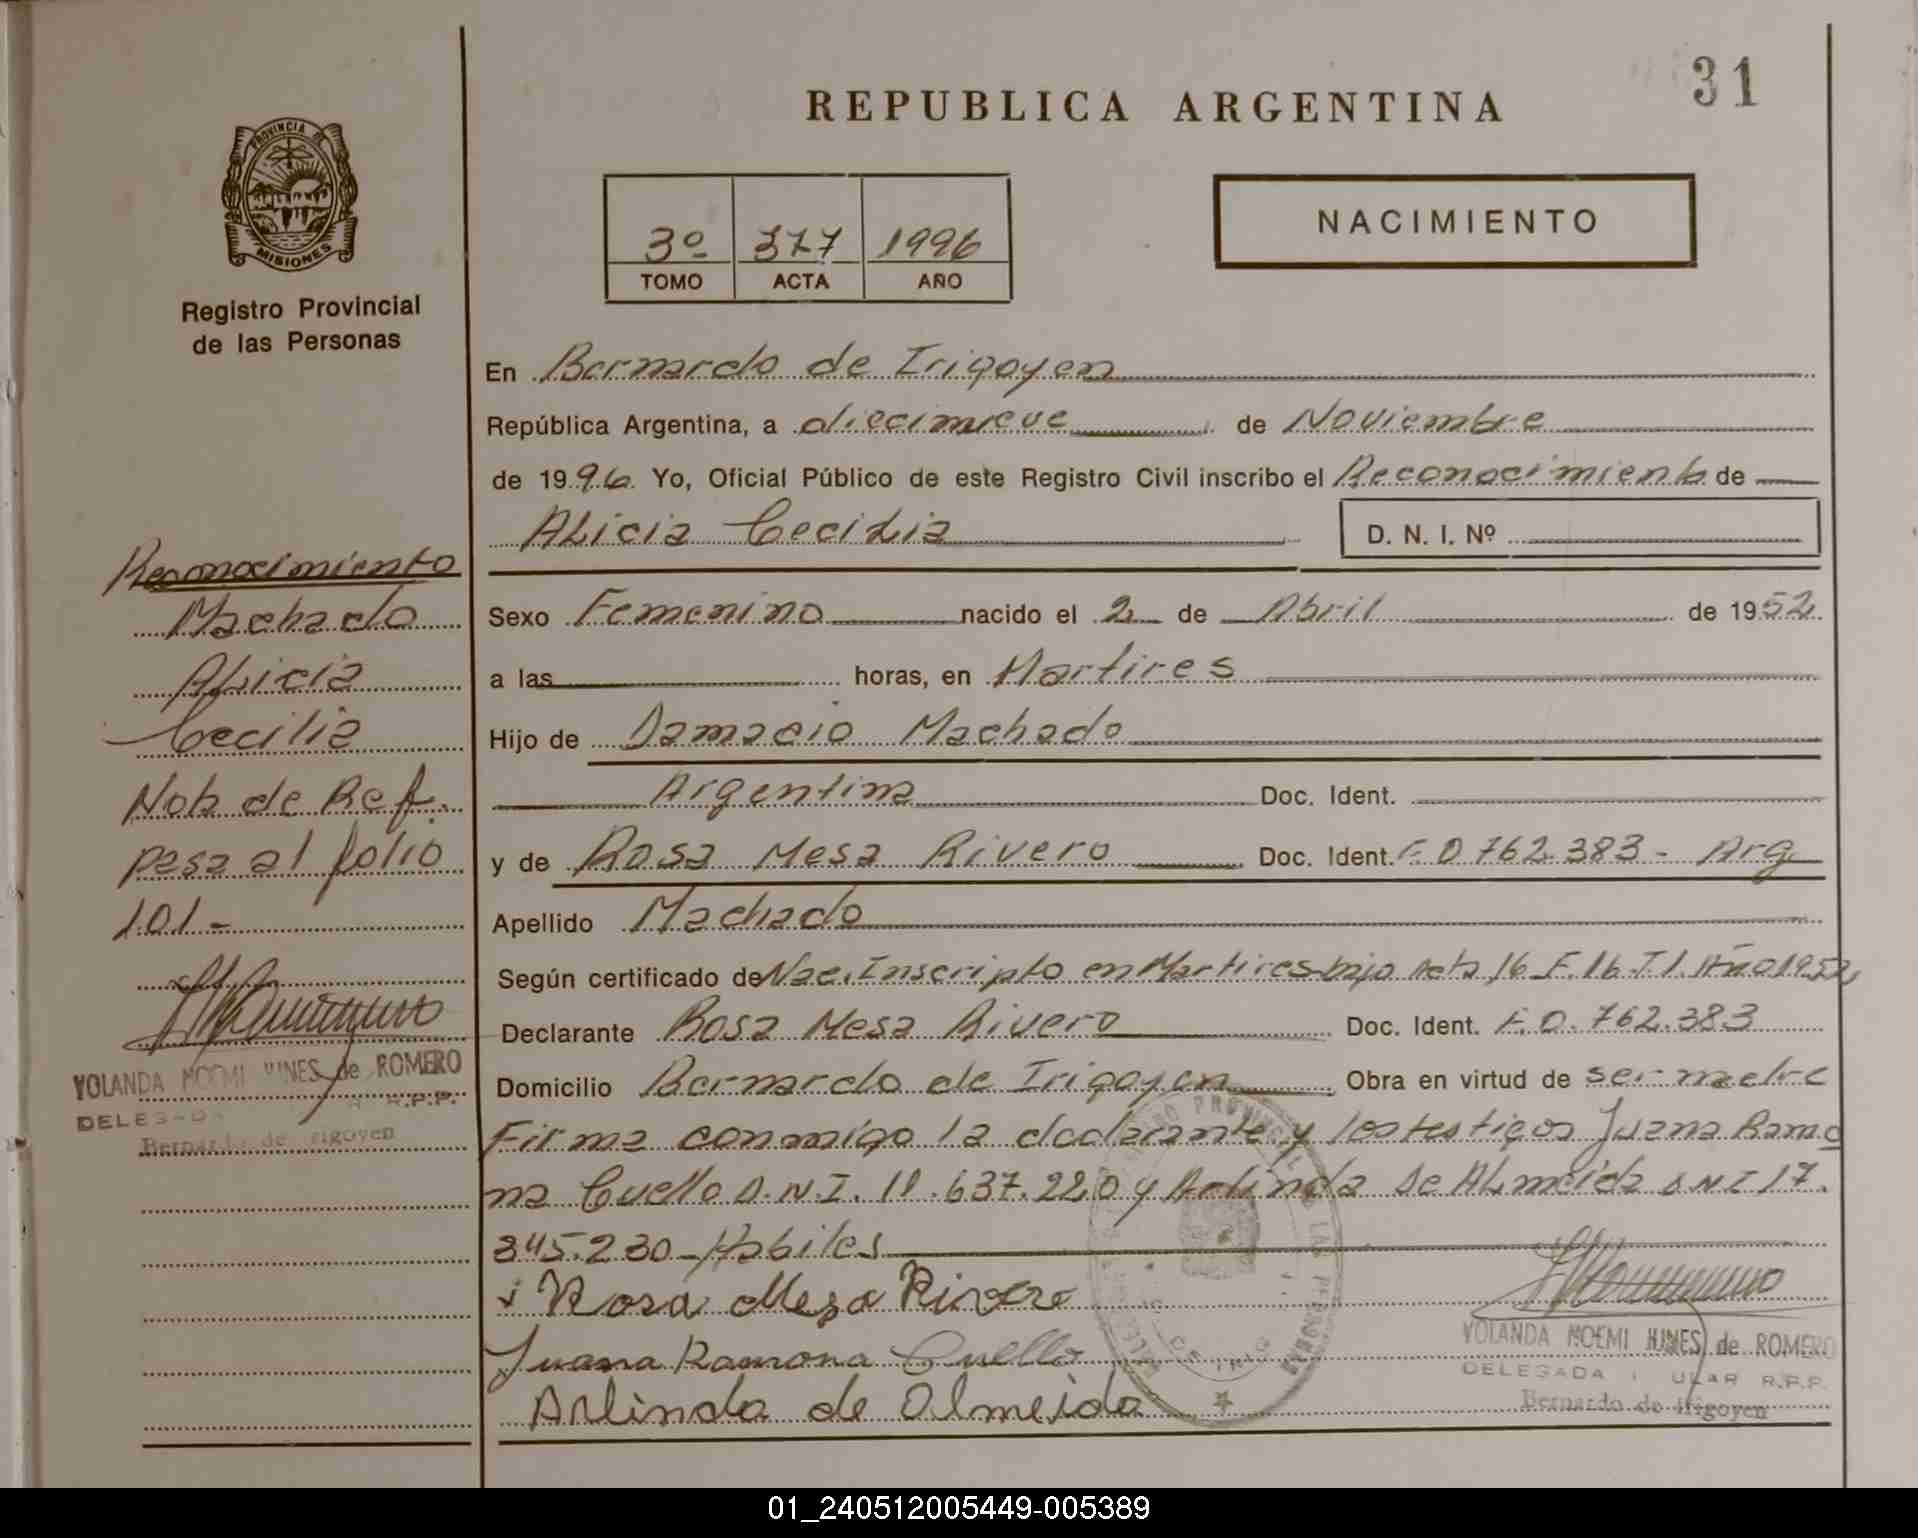 31
REPUBLICA ARGENTINA
PROVINCIA DE
MISIONES
Registro Provincial
de las Personas
3º 377 1996
TOMO ACTA AÑO
NACIMIENTO
En Bernardo de Irigoyen
República Argentina, a diecinueve de Noviembre
de 1996 Yo, Oficial Público de este Registro Civil inscribo el Reconocimiento de
Alicia Cecilia D. N. I. Nº
Sexo Femenino nacido el 2 de Abril de 1952
a las horas, en Martires
Hijo de Damacio Machado
Argentina Doc. Ident.
y de Rosa Mesa Rivero Doc. Ident. F. 0.762.383 - Arg
Apellido Machado
Según certificado de Nac. Inscripto en Martires bajo Acta 16 F. 16 T 1 Año 1952
Declarante Rosa Mesa Rivero Doc. Ident. F. 0.762.383
Domicilio Bernardo de Irigoyen Obra en virtud de ser madre
Firma conmigo la declarante y los testigos Juana Ramo
na Cuello D.N.I. 11.637.220 y Arlinda De Almeida DNI 17.
345.230 - Habiles
Rosa Mesa Rivero
Juana Ramona Cuello
Arlinda de Olmeida
YOLANDA NOEMI de ROMERO
DELEGADA R.P.P.
Bernardo de Irigoyen
Reconocimiento
Machado
Alicia
Cecilia
Nota de Ref.
pasa al folio
101 -
YOLANDA NOEMI de ROMERO
R.P.P.
Bernardo de Irigoyen
01_240512005449-005389